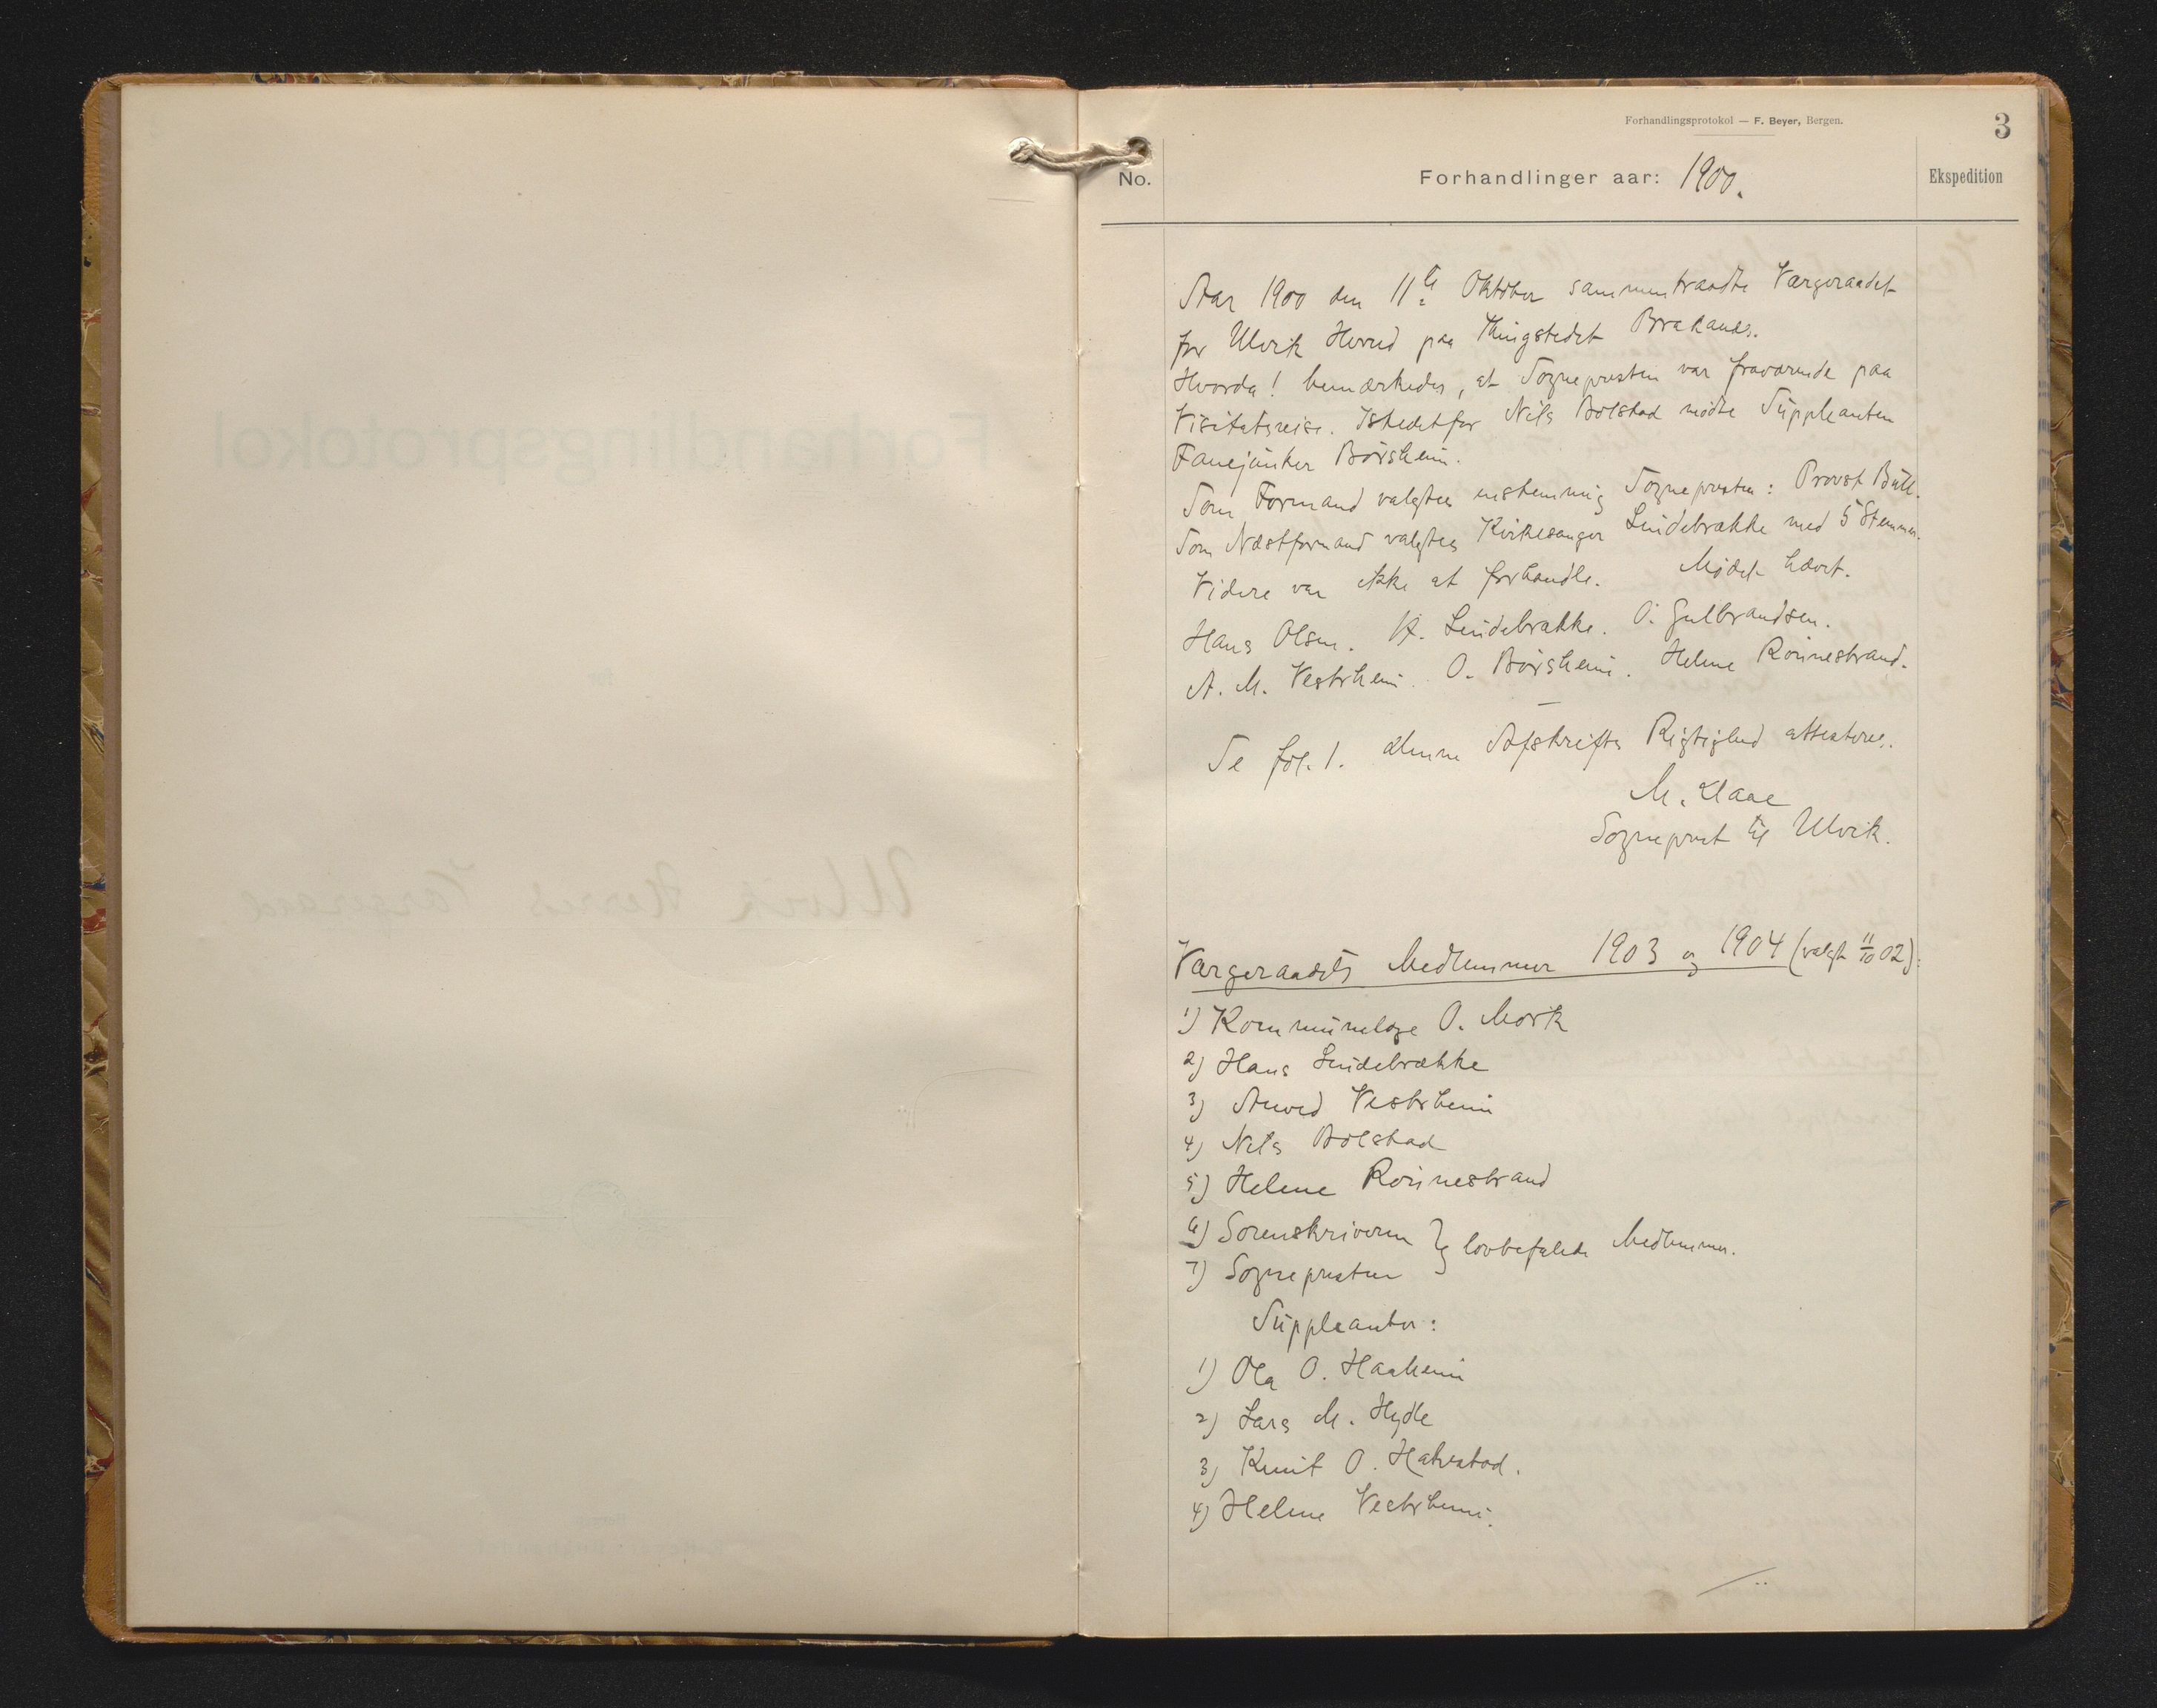 Forhandlingsprotokol — F. Beyer, Bergen.
3
No.
Forhandlinger aar: 1900.
Ekspedition
Aar 1900 den 11te Oktober sammentraadte Værgeraadet
for Ulvik Herred paa Thingstedet Brakanes.
Hvorda! bemærkedes, at Sognepresten var fraværende paa
Visitatsreise. Istedetfor Nils Bolstad mødte Suppleanten
Fanejunker Børsheim.
Som Formand valgtes enstemmig Sognepresten: Provst Bull.
Som Næstformand valgtes Kirkesanger Lindebrække med 5 Stemmer.
Videre var ikke at forhandle. Mødet hævet.
Hans Olsen. H. Lindebrække. O. Gulbrandsen.
A. M. Vestrheim. O. Børsheim. Helene Rønnestrand.
Se fol. 1. Denne Afskrifts Rigtighed attesteres.
M. Klaae
Sogneprest til Ulvik.
Værgeraadets Medlemmer 1903 og 1904 (valgt 11/10 02):
1) Kommunelæge O. Mørk
2) Hans Lindebrække
3) Anved Vestrheim
4) Nils Bolstad
5) Helene Rønnestrand
6) Sorenskriveren } lovbefalede Medlemmer.
7) Sognepresten
Suppleanter:
1) Ola O. Haaheim
2) Lars M. Hylle
3) Knut O. Hakestad.
4) Helene Vestrheim.